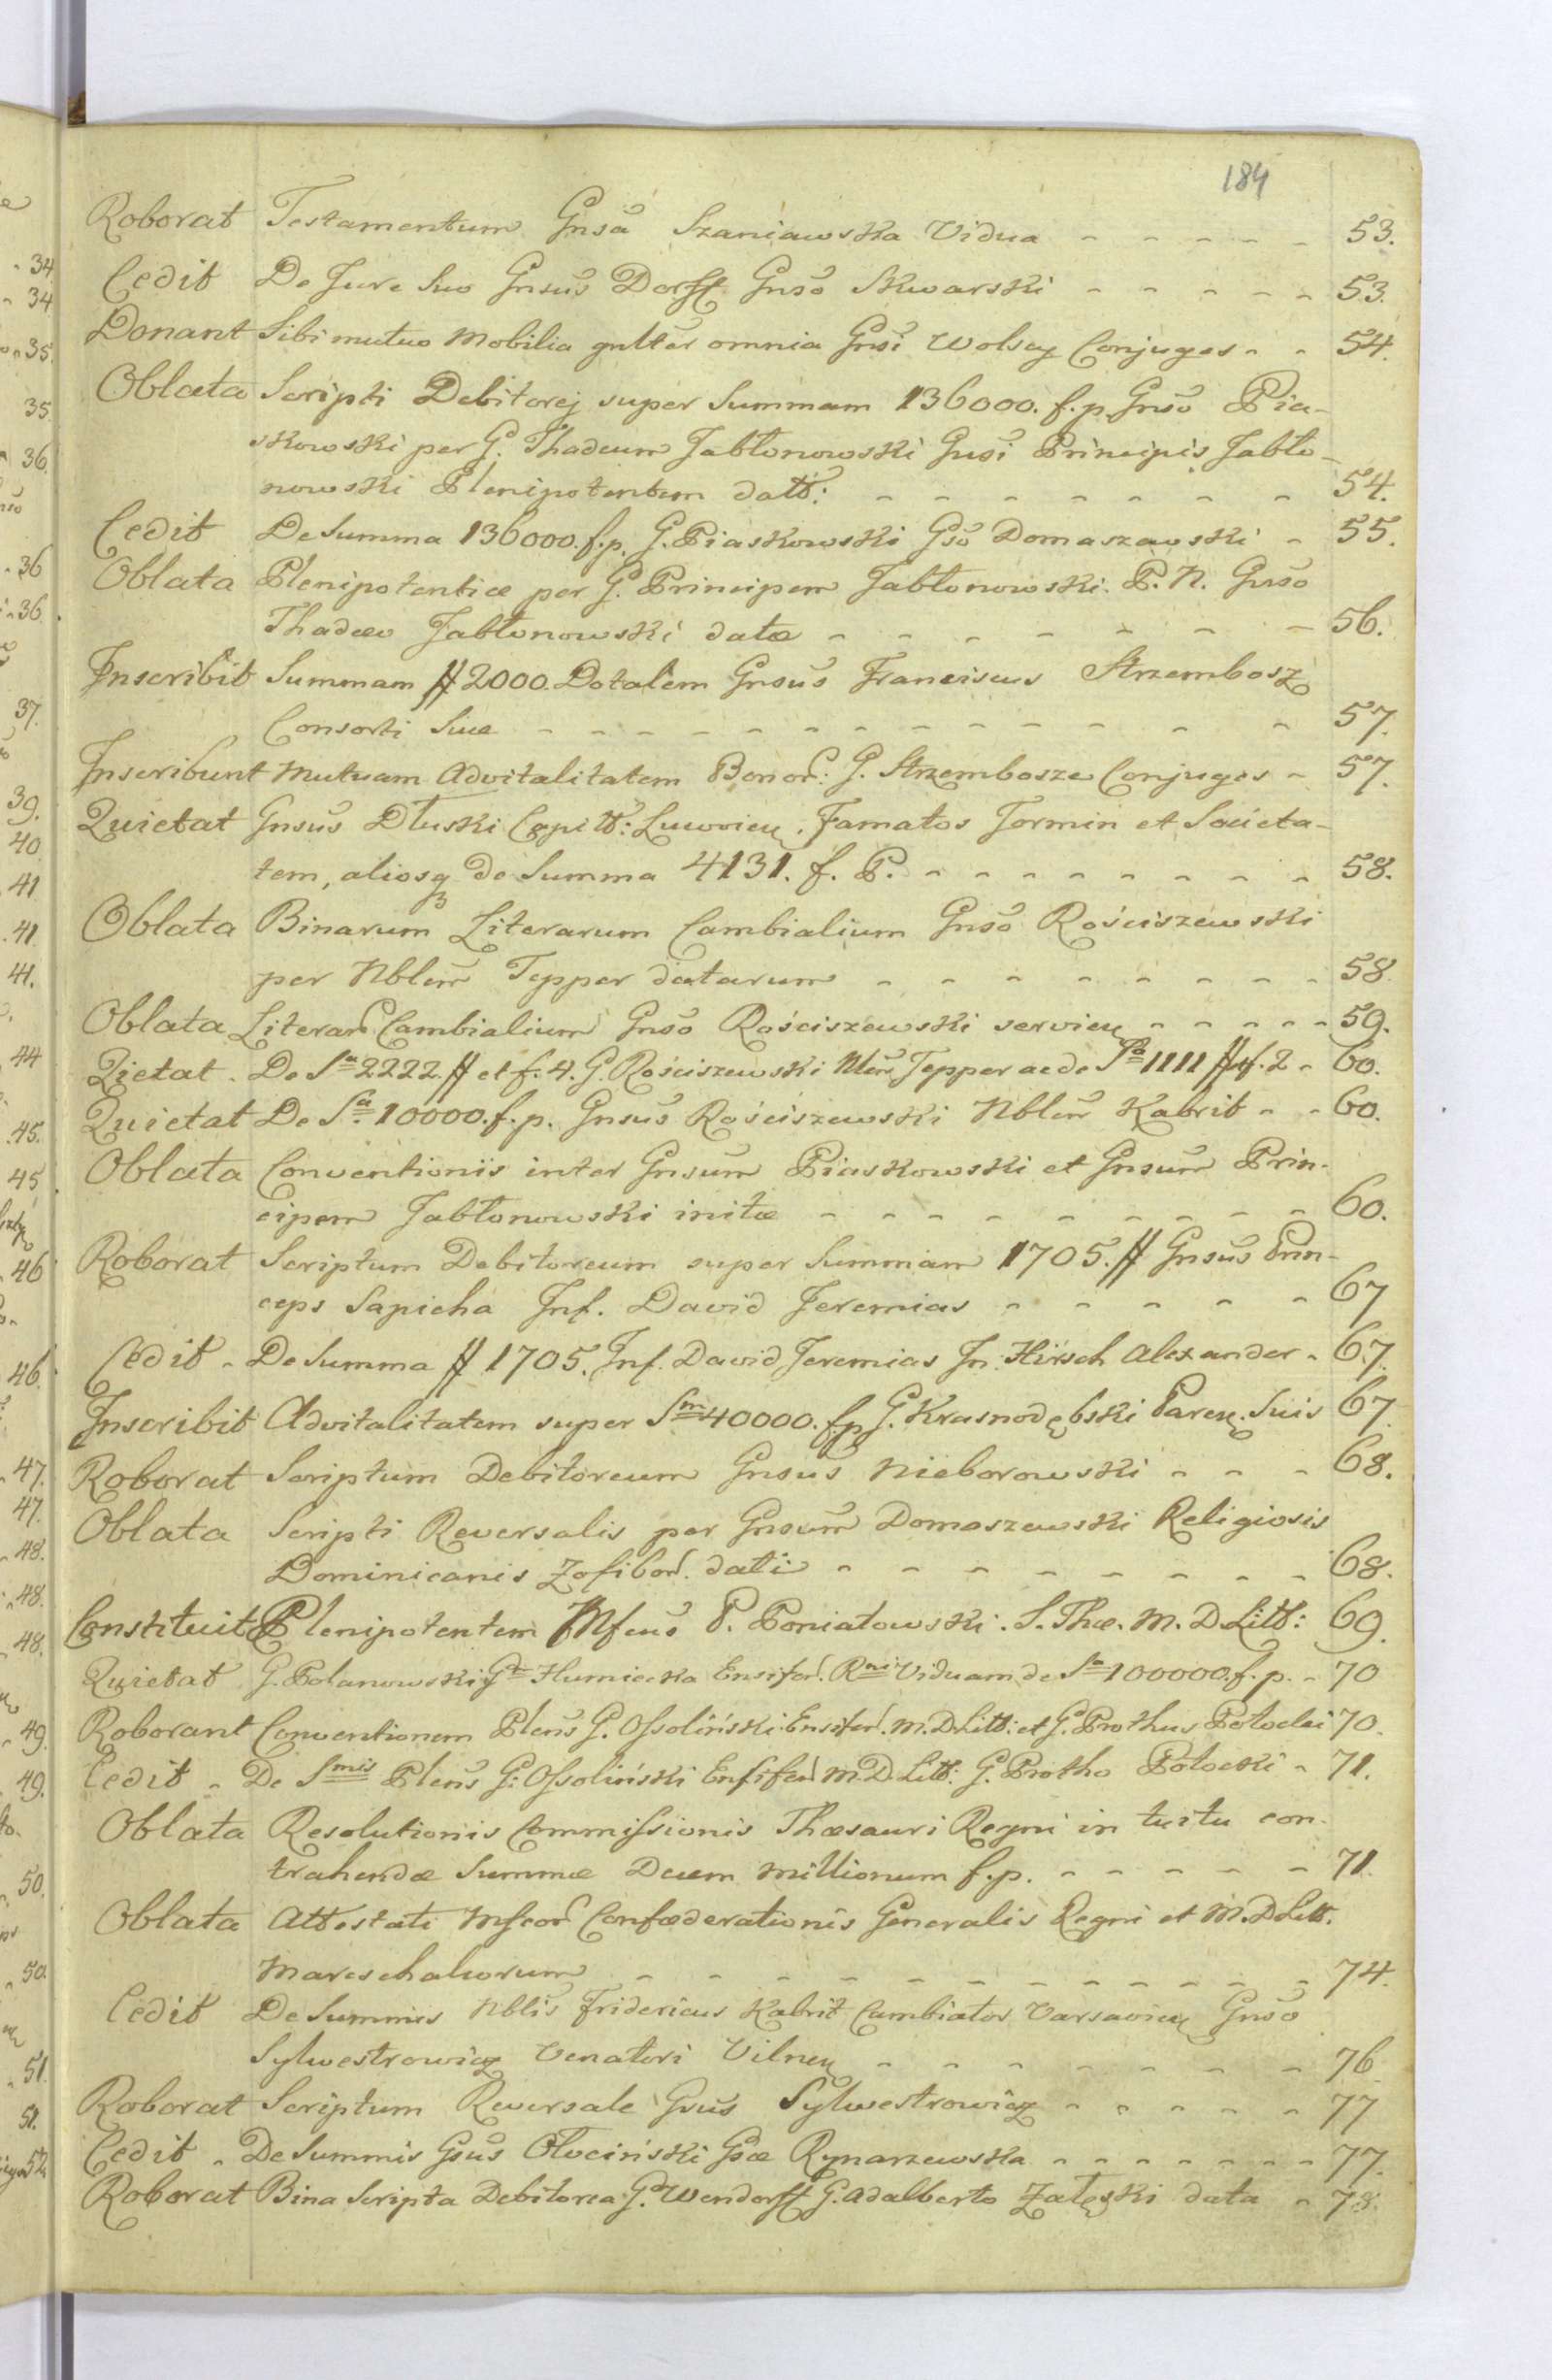 184
Roborat Testamentum Gnsa Szaniawska Vidua - - - - - 53.
Cedit De Jure Suo Gnsus Dorff Gnso Skwarski - - - - - 53.
Donant Sibi mutuo Mobilia gnlter omnia Gnsi Wolscy Conjuges - - 54.
Oblata Scripti Debitorej super Summam 136000. f. p. Gnso Pia-
skowski per G. Thadeum Jabłonowski Gnsi Principis Jabło-
nowski Plenipotentem datt: - - - - - - - 54.
Cedit De Summa 136000. f. p. G. Piaskowski Gso Domaszewski - 55.
Oblata Plenipotentiæ per G. Principem Jabłonowski. P. N. Gnso
Thadæo Jabłonowski datæ - - - - - - - 56.
Inscribit Summam # 2000. Dotalem Gnsus Franciscus Strzembosz
Consorti Suæ - - - - - - - - - - - 57.
Inscribunt Mutuam Advitalitatem Bonor: G. Strzembosze Conjuges - 57.
Quietat Gnsus Dłuski Capitt: Luovien. Famatos Formin et Societa-
tem, aliosq de Summa 4131. f. P. - - - - - - - - 58.
Oblata Binarum Literarum Cambialium Gnso Rościszewski
per Nblem Tepper datarum - - - - - - - - 58
Oblata Literar Cambialium Gnso Rościszewski servien - - - - - 59.
Qietat. De Sa 2222 # et f. 4. G. Rościszewski Nlem Tepper ac de Sa 1111 # f. 2 - 60.
Quietat De Sa 10000. f. p. Gnsus Rościszewski Nblem Kabrit - - 60.
Oblata Conventionis inter Gnsum Piaskowski et Gnsum Prin-
cipem Jabłonowski initæ - - - - - - - - - 60.
Roborat Scriptum Debitoreum super Summam 1705. # Gnsus Prin-
ceps Sapieha Inf. David Jeremias - - - - - 67
Cedit - De Summa # 1705. Inf. David Jeremias In. Hirsch Alexander - 67.
Inscribit Advitalitatem super Sm 40000. f. p G. Krasnodębski Paren. Suis 67
Roborat Scriptum Debitoreum Gnsus Nieborowski - - - 68.
Oblata Scripti Reversalis per Gnsum Domaszewski Religiosis
Dominicanis Zofibor. dati - - - - - - - - 68.
Constituit Plenipotentem Mfcus P. Poniatowski. S. Thæ. M. D. Litt: 69.
Quietat G. Polanowski G Humiecka Ensifer. Rni Viduam de Sa 100000. f. p. - 70
Roborant Conventionem Plens G. Ossoliński Ensifer. M. D. Litt: et G. Prothus Potocki 70.
Cedit - De Smis Plens G: Ossoliński Ensifer M. D. Litt: G. Protho Potocki - 71.
Oblata Resolutionis Commissionis Thæsauri Regni in tuitu con-
trahendæ Summæ Decem Millionum f. p. - - - - - 71.
Oblata Attestati Mfcor Confœderationis Generalis Regni et M. D. Litt.
Mareschalcorum - - - - - - - - - - - 74.
Cedit De Summis Nblis Fridericus Kabrit Cambiator Varsavien Gnso
Sylwestrowicz Venatori Vilnen - - - - - - - 76
Roborat Scriptum Reversale Gsus Sylwestrowicz - - - - - 77
Cedit - De Summis Gsus Otociński Gsæ Rynarzewska - - - - - - - 77.
Roborat Bina Scripta Debitorea G. Wendorff G. Adalberto Załęski data - 78.